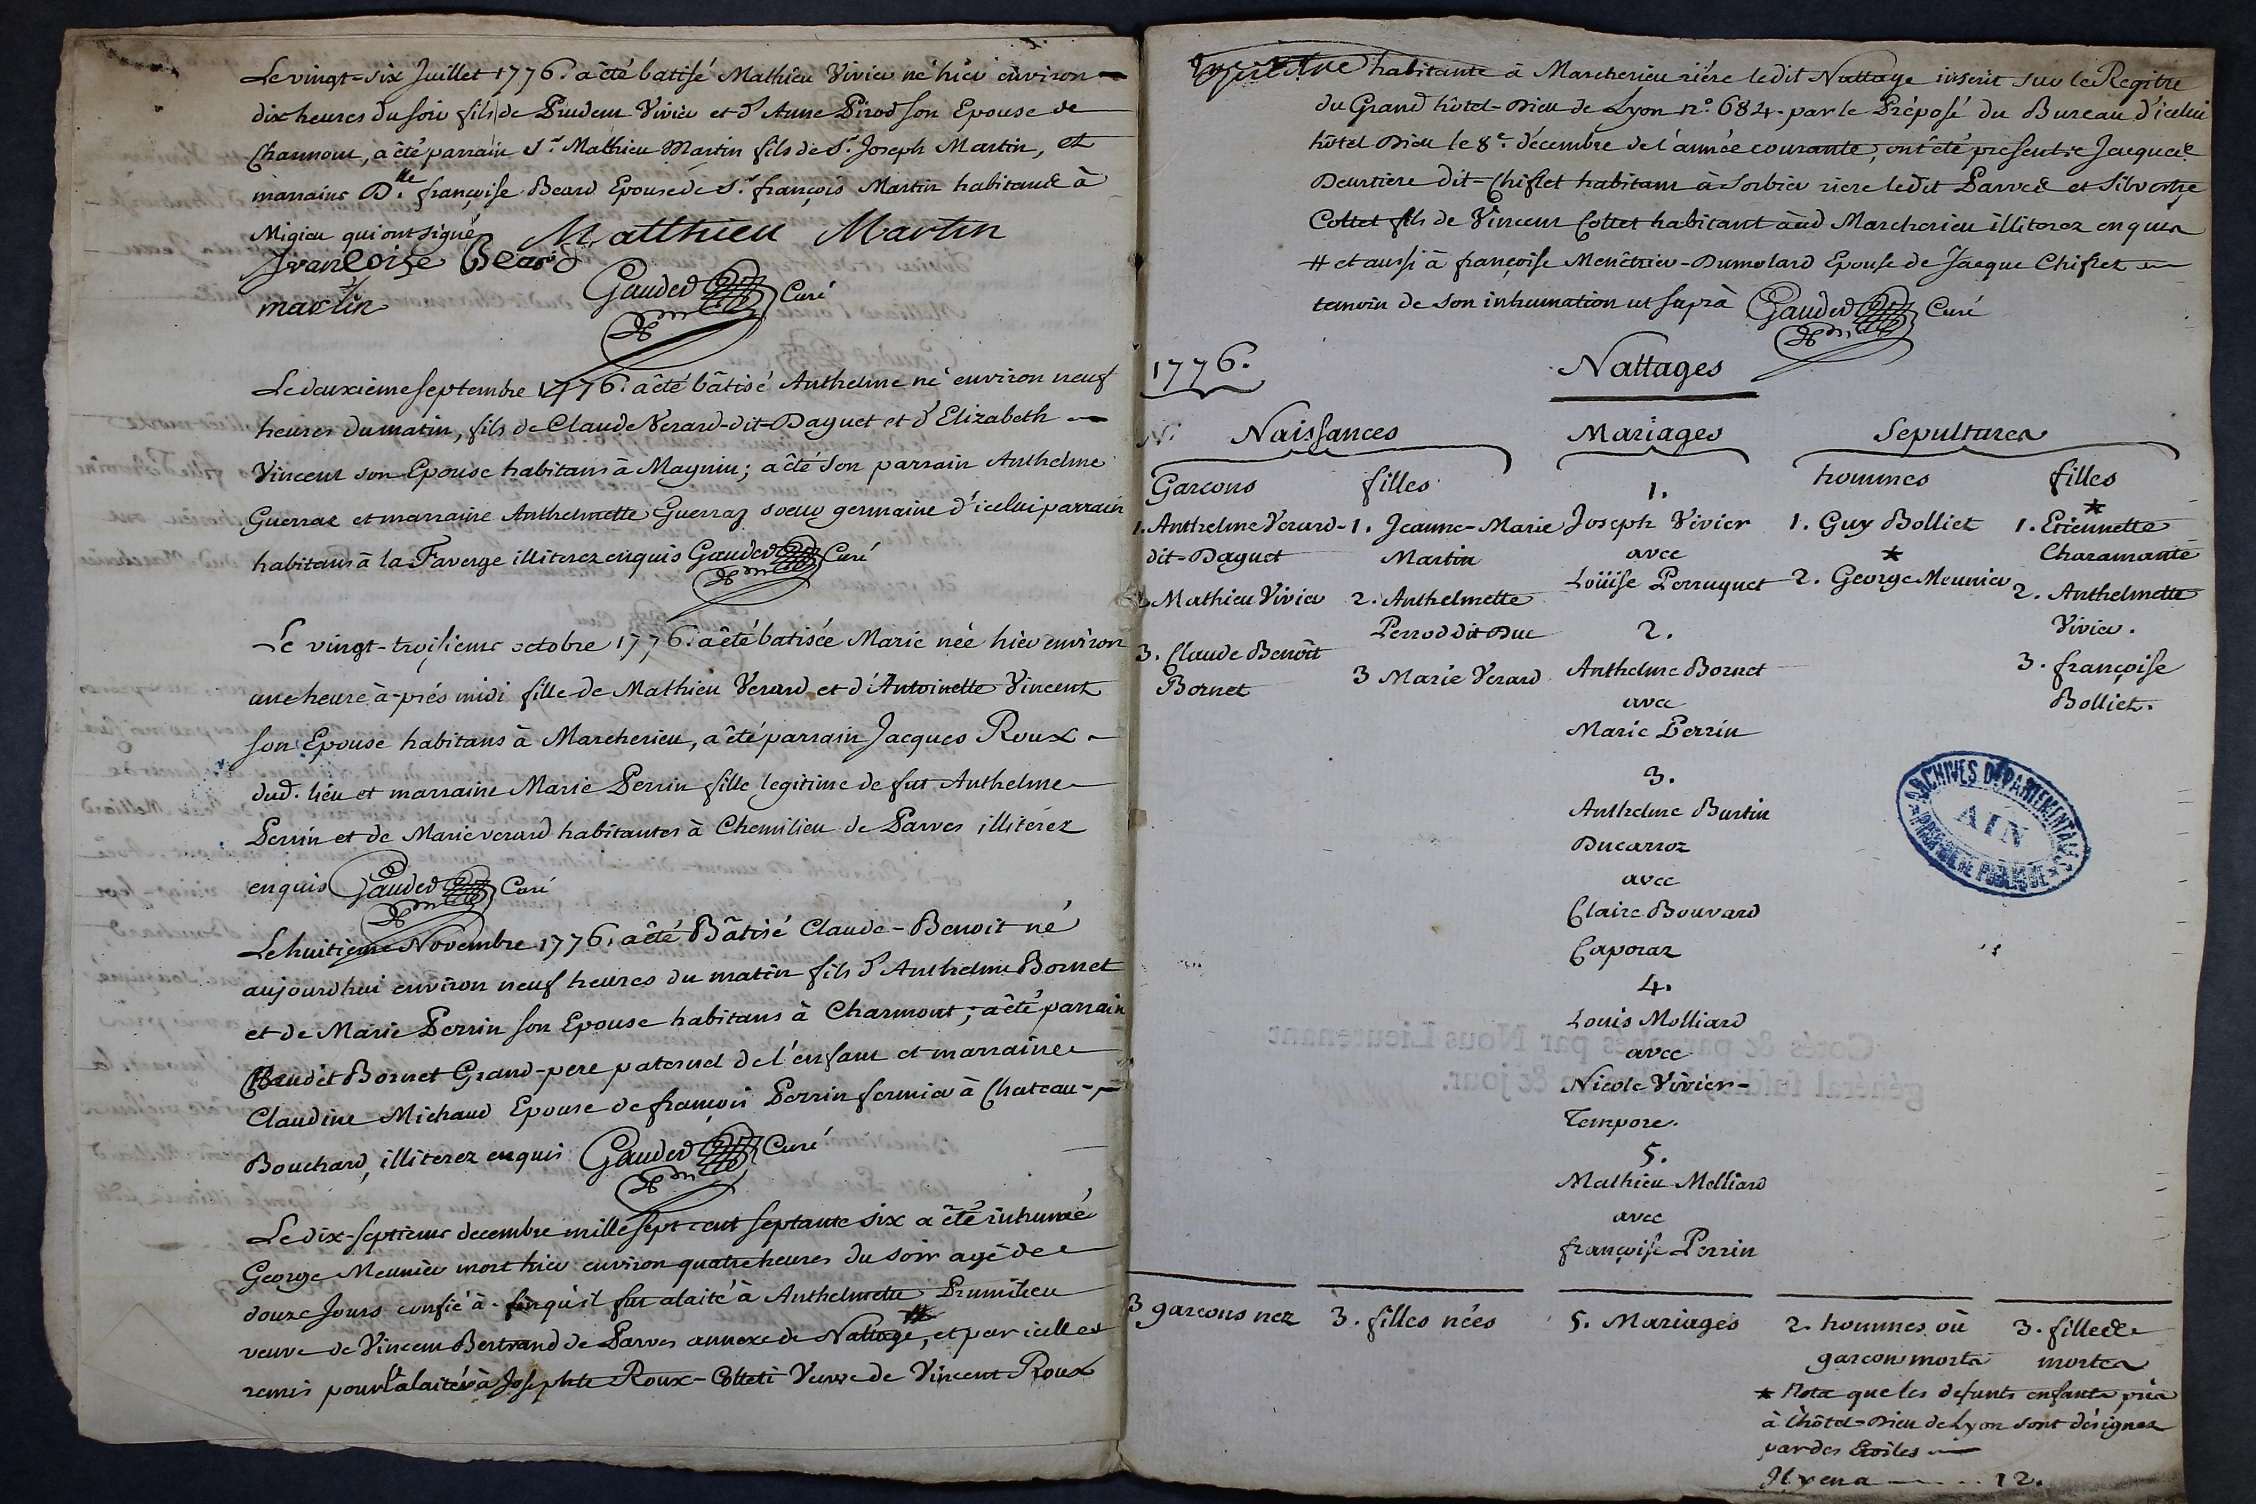 Le vingt-six Juillet 1776. a été batisé Mathieu Vivier né hier environ
dix heures du soir fils de Prudent Vivier et d'Anne Pirod son Epouse de
Charmont, a été parrain Sr. Mathieu Martin fils de Sr. Joseph Martin, et
marraine Dlle. françoise Beard Epouse de Sr. françois Martin habitants à
Migieu qui ont signé Matthieu Martin
francoise Beard
martin Gauded Curé
Le deuxieme septembre 1776. a été bâtisé Anthelme né environ neuf
heures du matin, fils de Claude Verard-dit-Daguet et d'Elizabeth
Vincent son Epouse habitans à Magnin; a été son parrain Anthelme
Guerraz et marraine Anthelmette Guerraz soeur germaine d'icelui parrain
habitans à la Faverge illiterez enquis Gauded Curé
Le vingt-troisieme octobre 1776. a été batisée Marie née hier environ
une heure à-prés midi fille de Mathieu Verard et d'Antoinette Vincent
son Epouse habitans à Marcherieu, a été parrain Jacques Roux
dud. lieu et marraine Marie Perrin fille legitime de fut Anthelme
Perrin et de Marie verard habitantes à Chemilieu de Parves illiterez
enquis Gauded Curé
Le huitieme Novembre 1776. a été Bâtisé Claude-Benoit né
aujourd'hui environ neuf heures du matin fils d'Anthelme Bornet
et de Marie Perrin son Epouse habitans à Charmont; a été parrain
Claude Bornet Grand-pere paternel de l'enfant et marraine
Claudine Michaud Epouse de françois Perrin fermier à Chateau-
Bouchard, illiterez enquis Gauded Curé
Le dix-septieme decembre mille sept cent septante six a été inhumé
George Meunier mort hier environ quatre heures du soir agé de
douze Jours confié à- fin qu'il fut alaité à Anthelmette Prumilieu
veuve de Vincent Bertrand de Parves annexe de Nattage #, et par icelle
remis pour l'alaiter à Josephte Roux-Colleti Veuve de Vincent Roux
habitante à Marcherieu riére ledit Nattage inscrit sur le Regitre
du Grand hôtel-Dieu de Lyon n.° 684. par le Préposé du Bureau d'icelui
hôtel Dieu le 8e. décembre de l'année courante, ont été presents Jacques
Deurtiere dit-Chiflet habitant à Sorbier riere ledit Parves et Silvestre
Collet fils de Vincent Collet habitant aud Marcherieu illiterez enquis
# et aussi à françoise Menêtrier-Dumolard Epouse de Jaque Chiflet
temoin de son inhumation ut suprà Gauded Curé
1776. Nattages
N.° Naissances Mariages Sepultures
Garcons filles hommes filles
1. Anthelme Verard-dit-Daguet
2. Mathieu Vivier
3. Claude Benoît
Bornet
1. Jeanne-Marie
Martin
2. Anthelmette
Perrod dit Duc
3 Marie Verard
1.
Joseph Vivier
avec
Loüise Perruquet
2.
Anthelme Bornet
avec
Marie Perrin
3.
Anthelme Burtin
Ducarroz
avec
Claire Bouvard
Caporaz
4.
Louis Molliard
avec
Nicole Vivier-
Tempore.
5.
Mathieu Melliard
avec
françoise Perrin
1. Guy Bolliet
*
2. George Meunier
*
1. Etiennette
Charamante
2. Anthelmette
Vivier.
3. françoise
Bolliet.
ARCHIVES DÉPARTEMENTALES
AIN
PROPRIÉTÉ PUBLIQUE
3 garcons nez 3. filles nées 5. Mariages 2. hommes où 3. filles
garcons morts mortes
* Nota que les defunts enfants pris
à l'hôtel-Dieu de Lyon sont désignez
par des Etoiles
Il y en a 12.